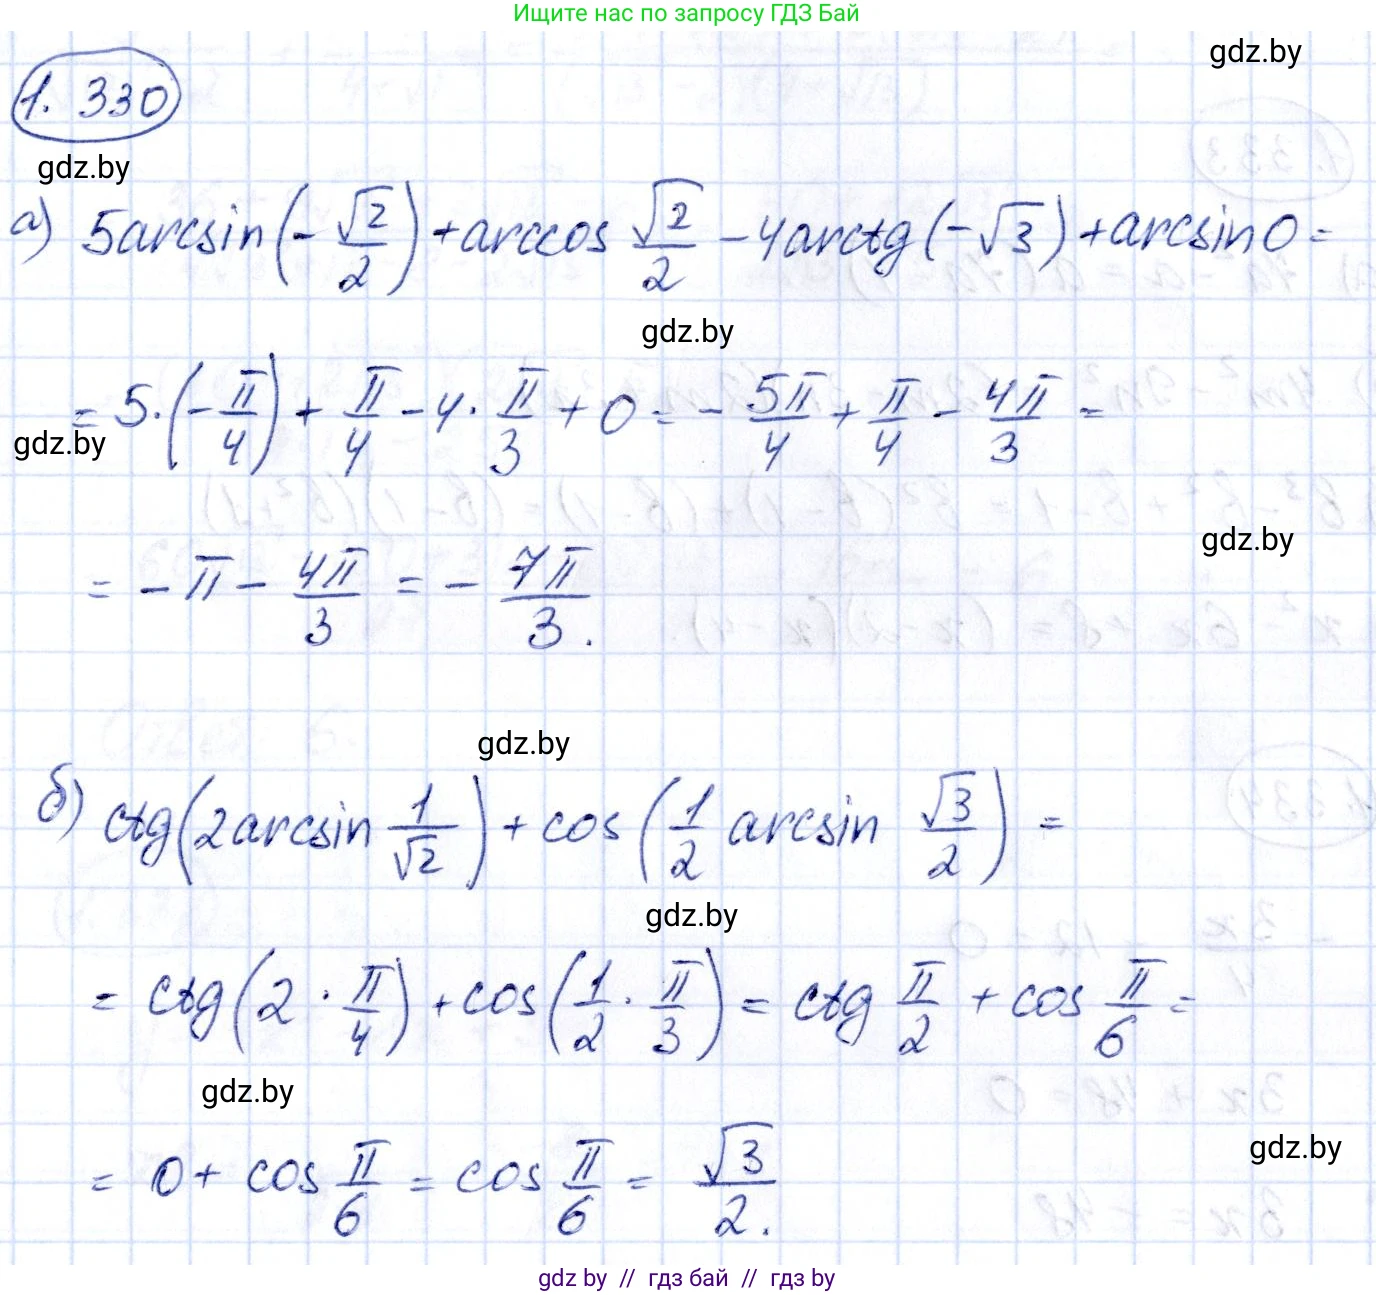 Ищите нас по запросу ГДЗ Бай
gdz.by
1. 330
gdz.by
а) 5arcsin(-√2/2)+arccos √2/2 -4arctg(-√3)+arcsin0=
gdz.by
=5·(-π/4)+π/4-4·π/3+0=-5π/4+π/4-4π/3=
gdz.by
gdz.by
=-π-4π/3=-7π/3.
gdz.by
б) ctg(2arcsin 1/√2)+cos(1/2 arcsin √3/2)=
gdz.by
=ctg(2·π/4)+cos(1/2·π/3)=ctg π/2+cos π/6=
gdz.by
gdz.by
=0+cos π/6=cos π/6=√3/2.
gdz by // гдз бай // гдз by